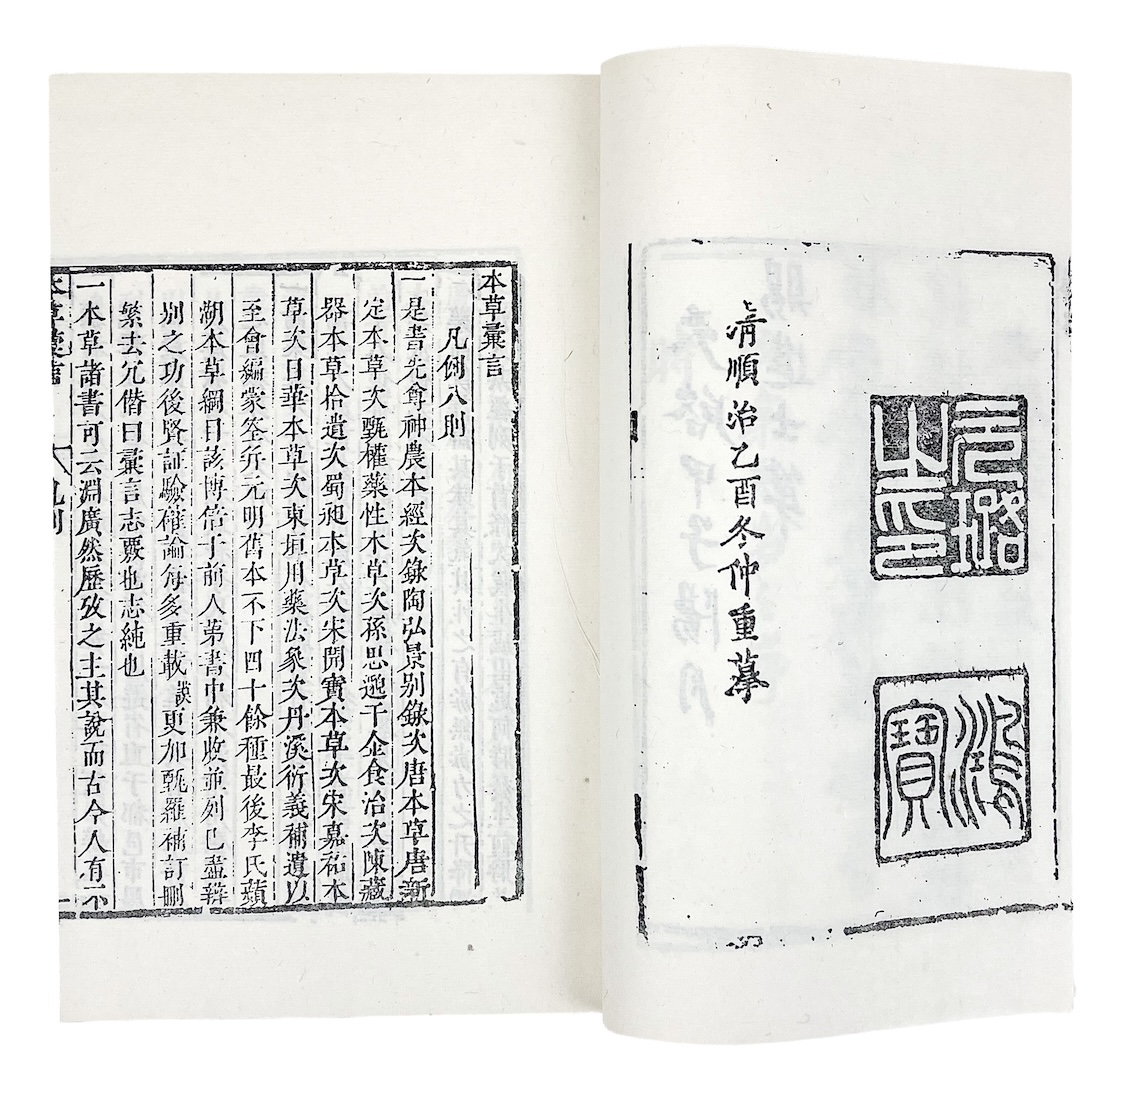 元璐之印
鴻寶
清順治乙酉冬仲重摹
本草彙言
凡例八則
一是書先尊神農本經次錄陶弘景别錄次唐本草唐新
定本草次甄權藥性本草次孫思邈千金食治次陳藏
器本草拾遺次蜀昶本草次宋開寳本草次宋嘉祐本
草次日華本草次東垣用藥法象次丹溪衍義補遺以
至會編蒙筌弁元明舊本不下四十餘種最後李氏蘋
湖本草綱目該博倍于前人第書中兼收並列已盡辯
别之功後賢証驗確論每多重載談更加甄羅補訂刪
繁去冗僭曰彙言志覈也志純也
一本草諸書可云淵廣然歷攷之主其說而古今人有不
本草彙言
凡例
一